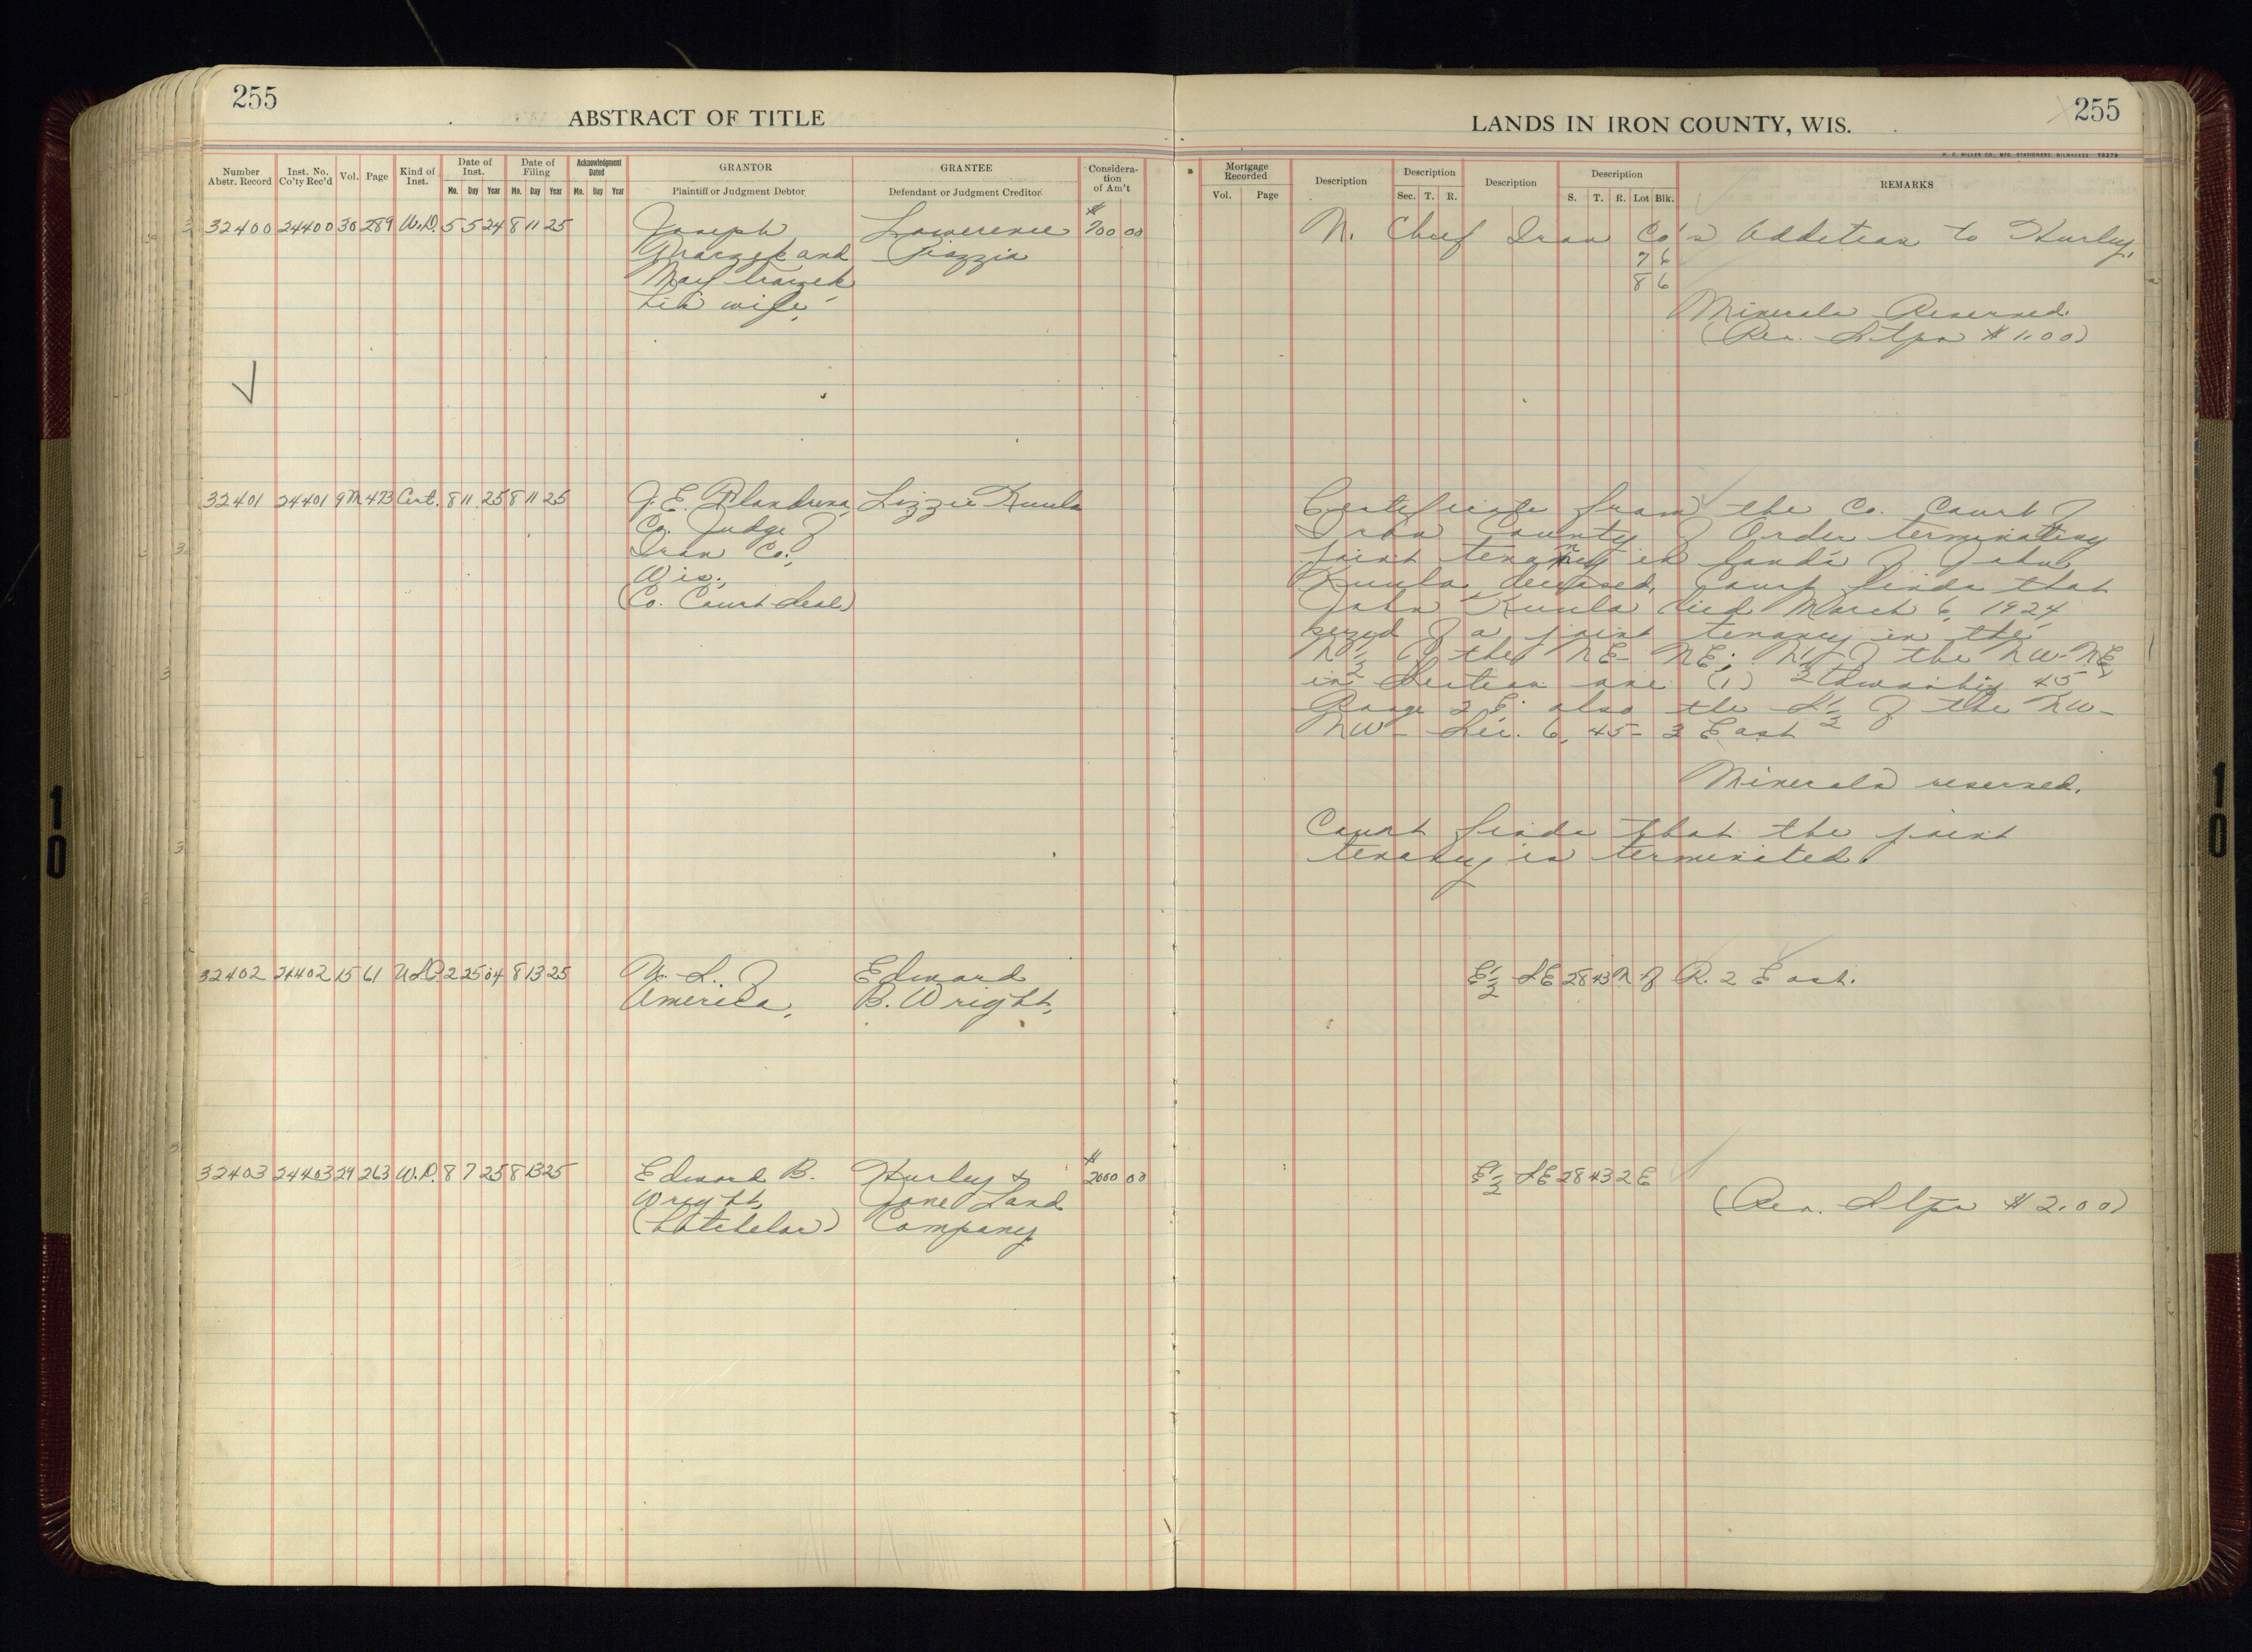 255
ABSTRACT OF TITLE
LANDS IN IRON COUNTY, WIS.
255
H. C. MILLER CO., MFG. STATIONERS, MILWAUKEE Y5279
Number Abstr. Record
Inst. No. Co'ty Rec'd
Vol.
Page
Kind of Inst.
Date of Inst.
Mo. Day Year
Date of Filing
Mo. Day Year
Acknowledgment Dated
Mo. Day Year
GRANTOR
Plaintiff or Judgment Debtor
GRANTEE
Defendant or Judgment Creditor
Considera-tion of Am't
Mortgage Recorded
Vol. Page
Description
Description
Sec. T. R.
Description
Description
S. T. R. Lot Blk.
REMARKS
32400 24400 30 289 W.D. 5 5 24 8 11 25 Joseph Lowerence $ 700 00 N. Chief Iron Co's Addition to Hurley.
and Piazzia 7 6
Mary 8 6
his wife,
Minerals Reserved
(Rev. Stps $1.00)
32401 24401 9M 473 Cert. 8 11 25 8 11 25 J. E. Lizzie Kuula Certificate from the Co. Court of
Co. Judge of Iron County of Order terminating
Iron Co., joint tenancy in lands of John
Wis., Kuula deceased, Court finds that
(Co. Court Seal) John Kuula died March 6, 1924
seized of a joint tenancy in the
N 1/2 of the NE-NE; N 1/2 of the NW-NE
in Section one (1) township 45
Range 2 E. also the S 1/2 of the NW-
NW- Sec. 6, 45- 3 East
Minerals reserved.
Court finds that the joint
tenancy is terminated.
32402 24402 15 61 U.S.P. 2 25 04 8 13 25 U. S. of Edward E 1/2 SE 28 43 N of R. 2 East.
America, B. Wright,
32403 24403 29 263 W.D. 8 7 25 8 13 25 Edward B. Hurley & $ 2000 00 E 1/2 SE 28 43 2 E
Wright Land (Rev. Stps $2.00)
(batchelor) Company
10
10